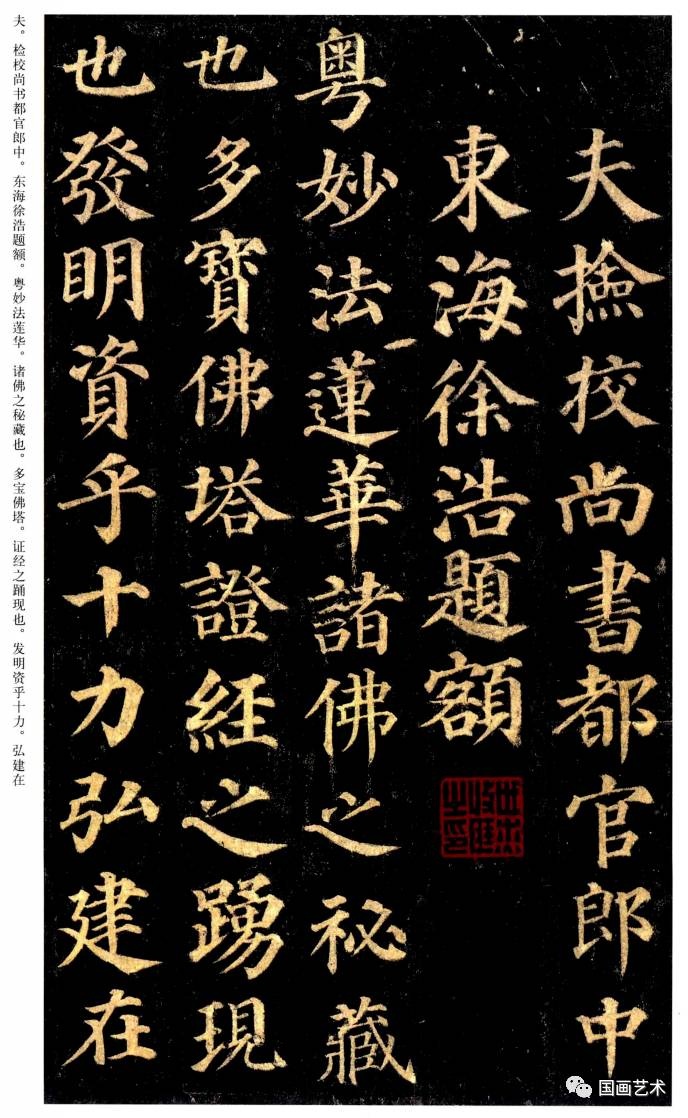 夫撿挍尚書都官郎中
東海徐浩題額
粵妙法蓮華諸佛之祕藏
也多寶佛塔證經之踴現
也發眀資乎十力弘建在
夫。检校尚书都官郎中。东海徐浩题额。粤妙法莲华。诸佛之秘藏也。多宝佛塔。证经之踊现也。发明资乎十力。弘建在
国画艺术